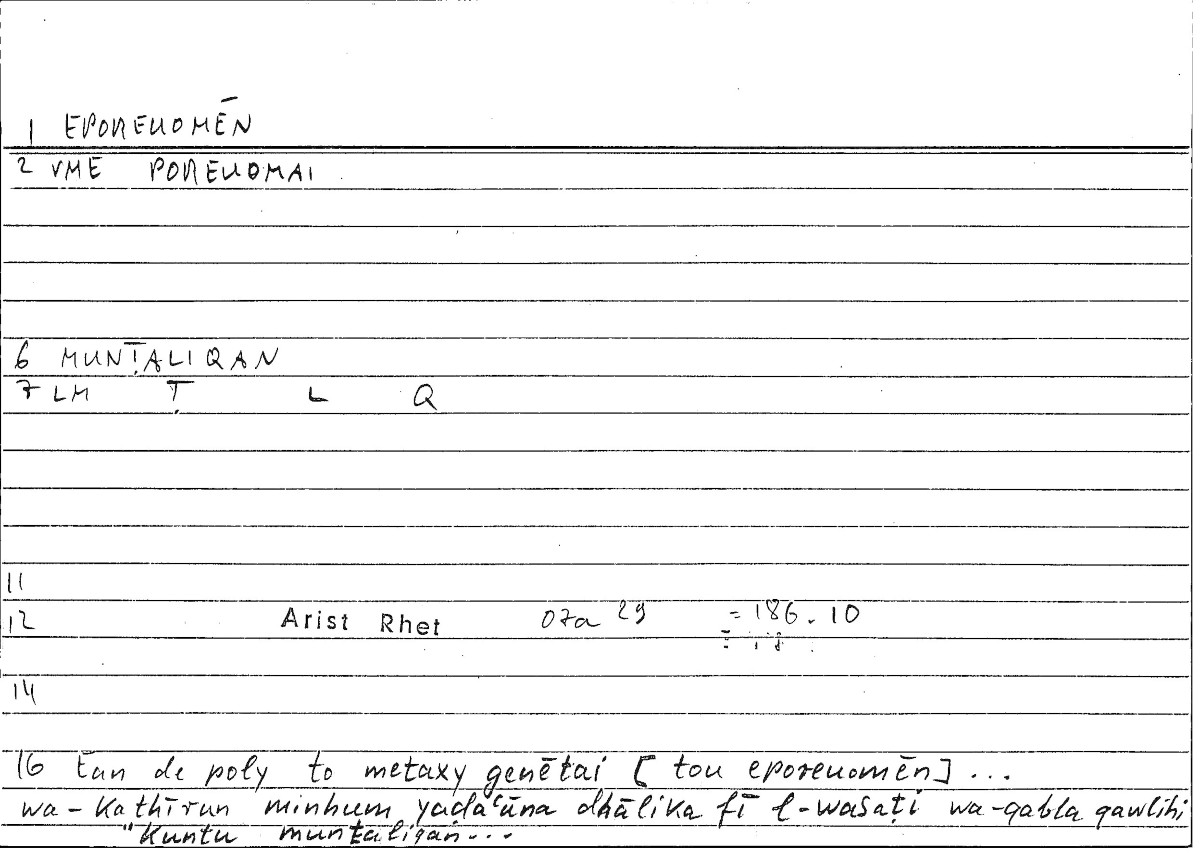 1 EPOREUOMĒN
2 VME POREUOMAI
6 MUNṬALIQAN
7 LM Ṭ L Q
11
12 Arist Rhet 07a 29 = 186.10
14
16 ean de poly to metaxy genētai [ tou eporeuomēn] ...
wa-kathīrun minhum yaḍaʿūna dhālika fī l-wasaṭi wa-qabla qawlihi
"Kuntu munṭaliqan...